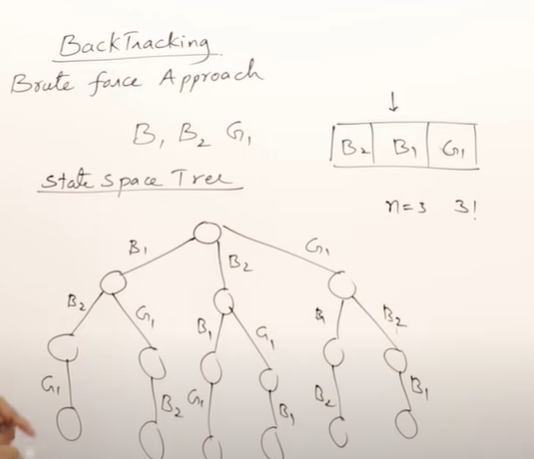 BackTracking
Brute force Approach
B1 B2 G1
B2 B1 G1
State Space Tree
n=3 3!
B1 B2 G1
B2 G1 B1 G1 B1 B2
G1 B2 G1 B1 B2 B1